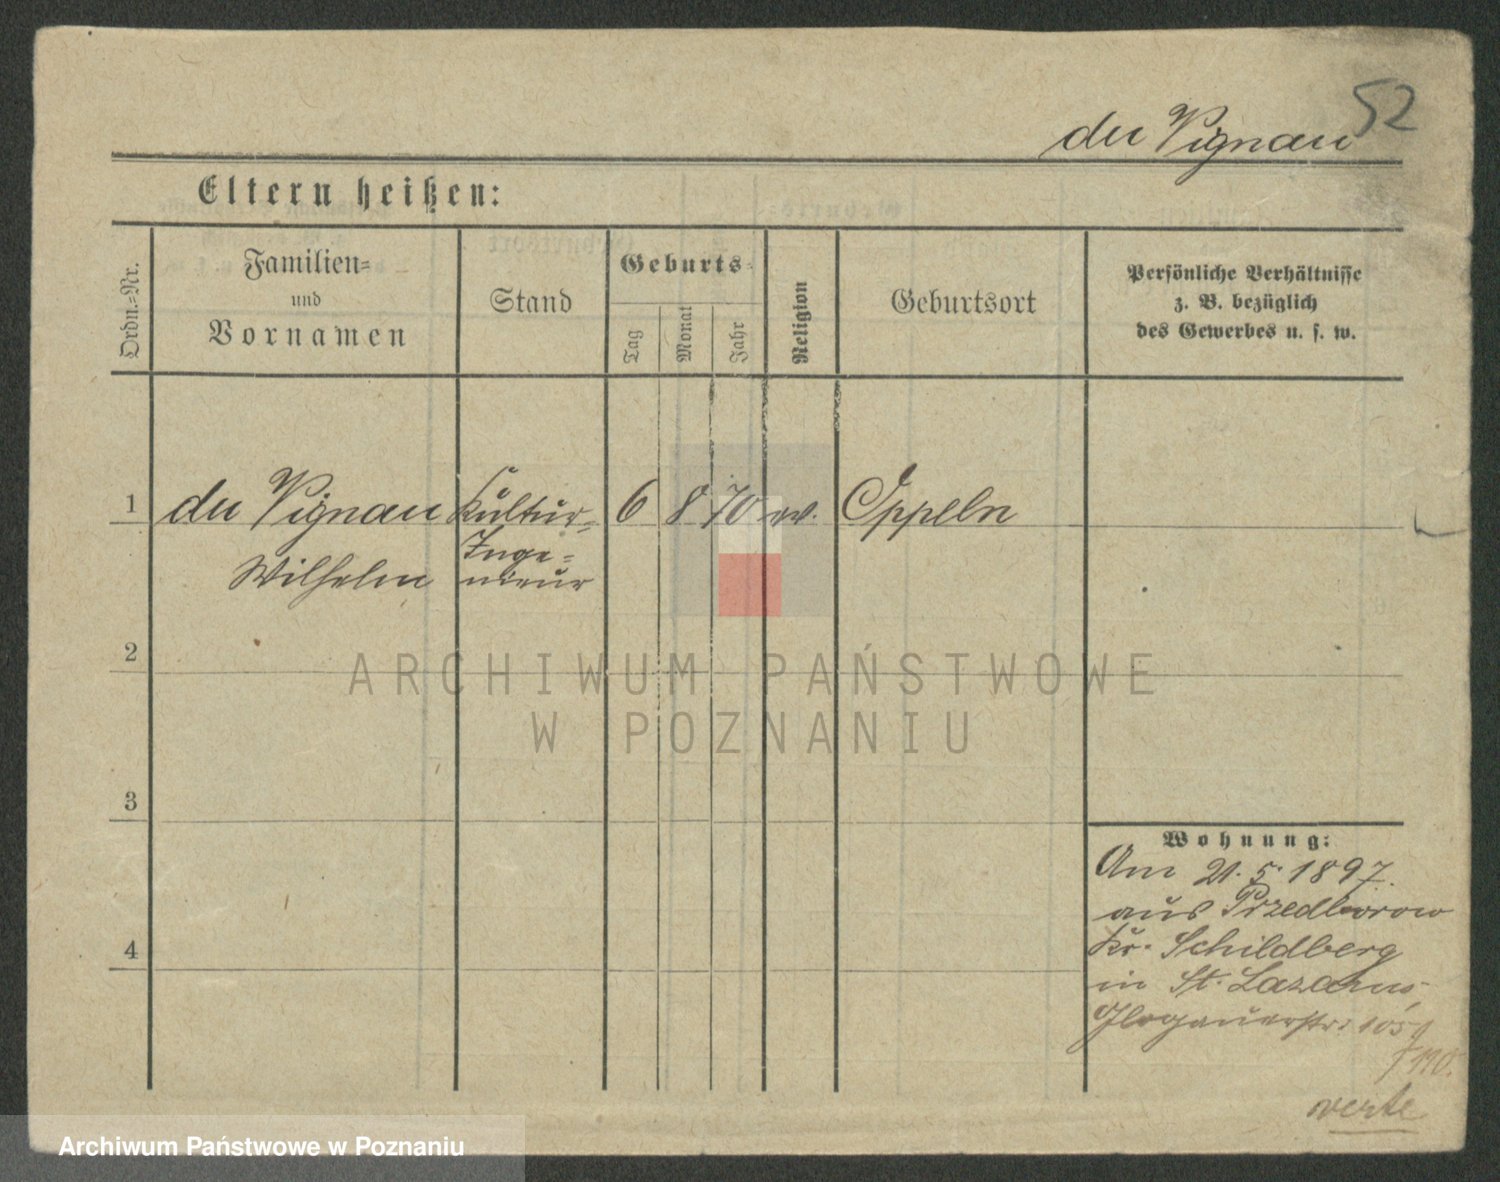 52
du Vignau
Eltern heißen:
Ordn.-Nr.
Familien-
und
Vornamen
Stand
Geburts-
Tag
Monat
Jahr
Religion
Geburtsort
Persönliche Verhältnisse
z. B. bezüglich
des Gewerbes u. s. w.
1 du Vignau Kultur- 6 8 70 ev. Oppeln
Wilhelm Inge-
nieur
2
3
4
Wohnung:
Am 21.5.1897.
aus Przedborow
Kr. Schildberg
in St. Lazarus,
Glogauerstr. 105
verte
ARCHIWUM PAŃSTWOWE
W POZNANIU
Archiwum Państwowe w Poznaniu